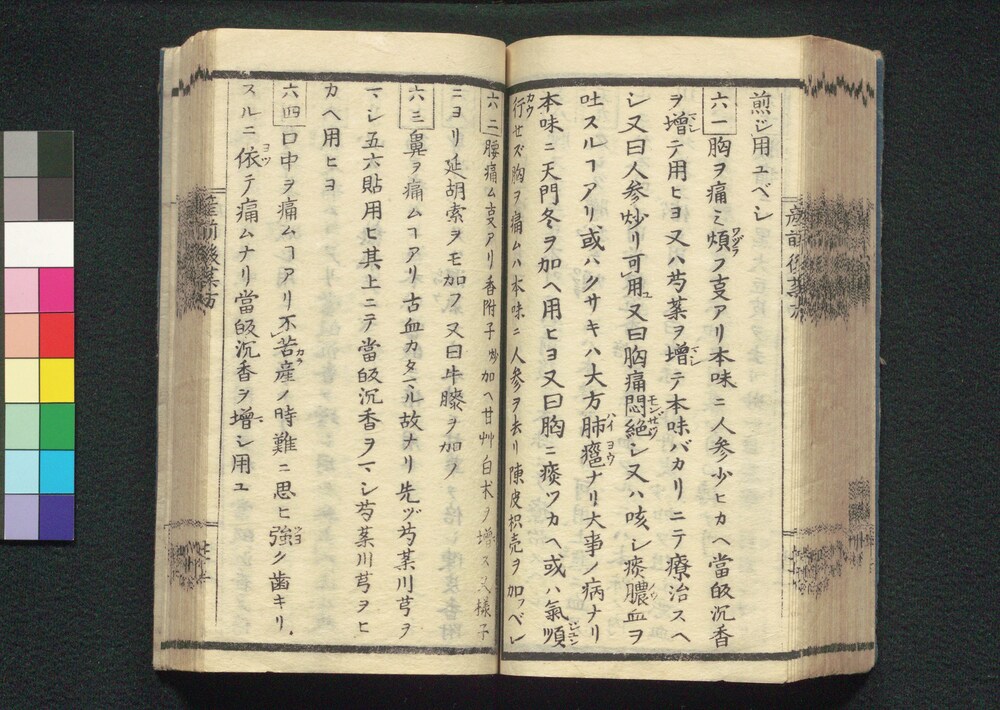 煎ジ用ユベシ
六一 胸ヲ痛ミ煩フ叓アリ本味ニ人参少ヒカヘ當皈沉香
ヲ増テ用ヒヨ又ハ芍薬ヲ増テ本味バカリニテ療治スヘ
シ又曰人参炒リ可用又曰胸痛悶絶シ又ハ咳シ痰膿血ヲ
吐スルヿアリ或ハクサキハ大方肺癰ナリ大事ノ病ナリ
本味ニ天門冬ヲ加ヘ用ヒヨ又曰胸ニ痰ツカヘ或ハ氣順
行せズ胸ヲ痛ムハ本味ニ人参ヲ去リ陳皮枳売ヲ加ッベシ
六二 腰痛ム叓アリ香附子炒加ヘ甘艸白朮ヲ増ス又様子
ニヨリ延胡索ヲモ加フ又曰牛膝ヲ加フ
六三 鼻ヲ痛ムヿアリ古血カタマル故ナリ先ヅ芍薬川芎ヲ
マシ五六貼用ヒ其上ニテ當皈沉香ヲマシ芍薬川芎ヲヒ
カヘ用ヒヨ
六四 口中ヲ痛ムヿアリ不苦産ノ時難ニ思ヒ強ク歯キリ
スルニ依テ痛ムナリ當皈沉香ヲ増シ用ユ
産前後薬方